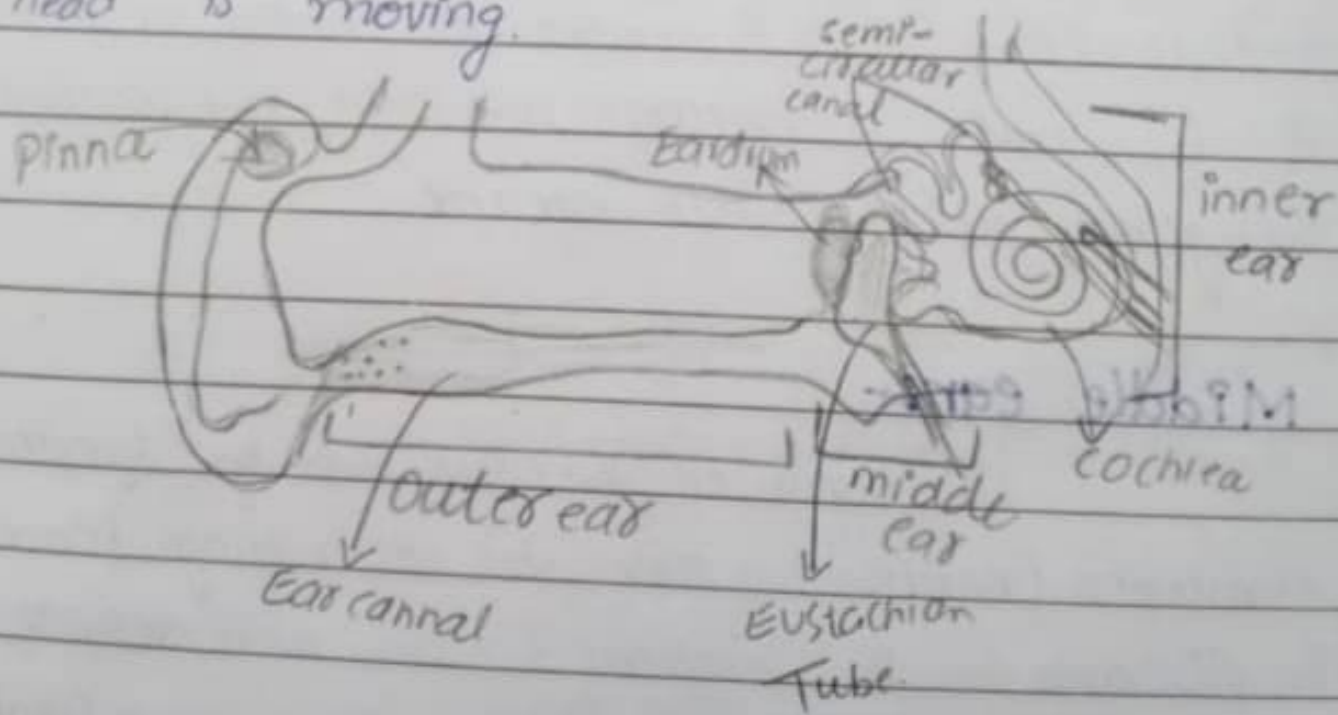 head is moving.
semi-
circular
canal
pinna
Eardrum
inner
ear
cochlea
outer ear
middle
ear
Ear cannal
Eustachion
Tube